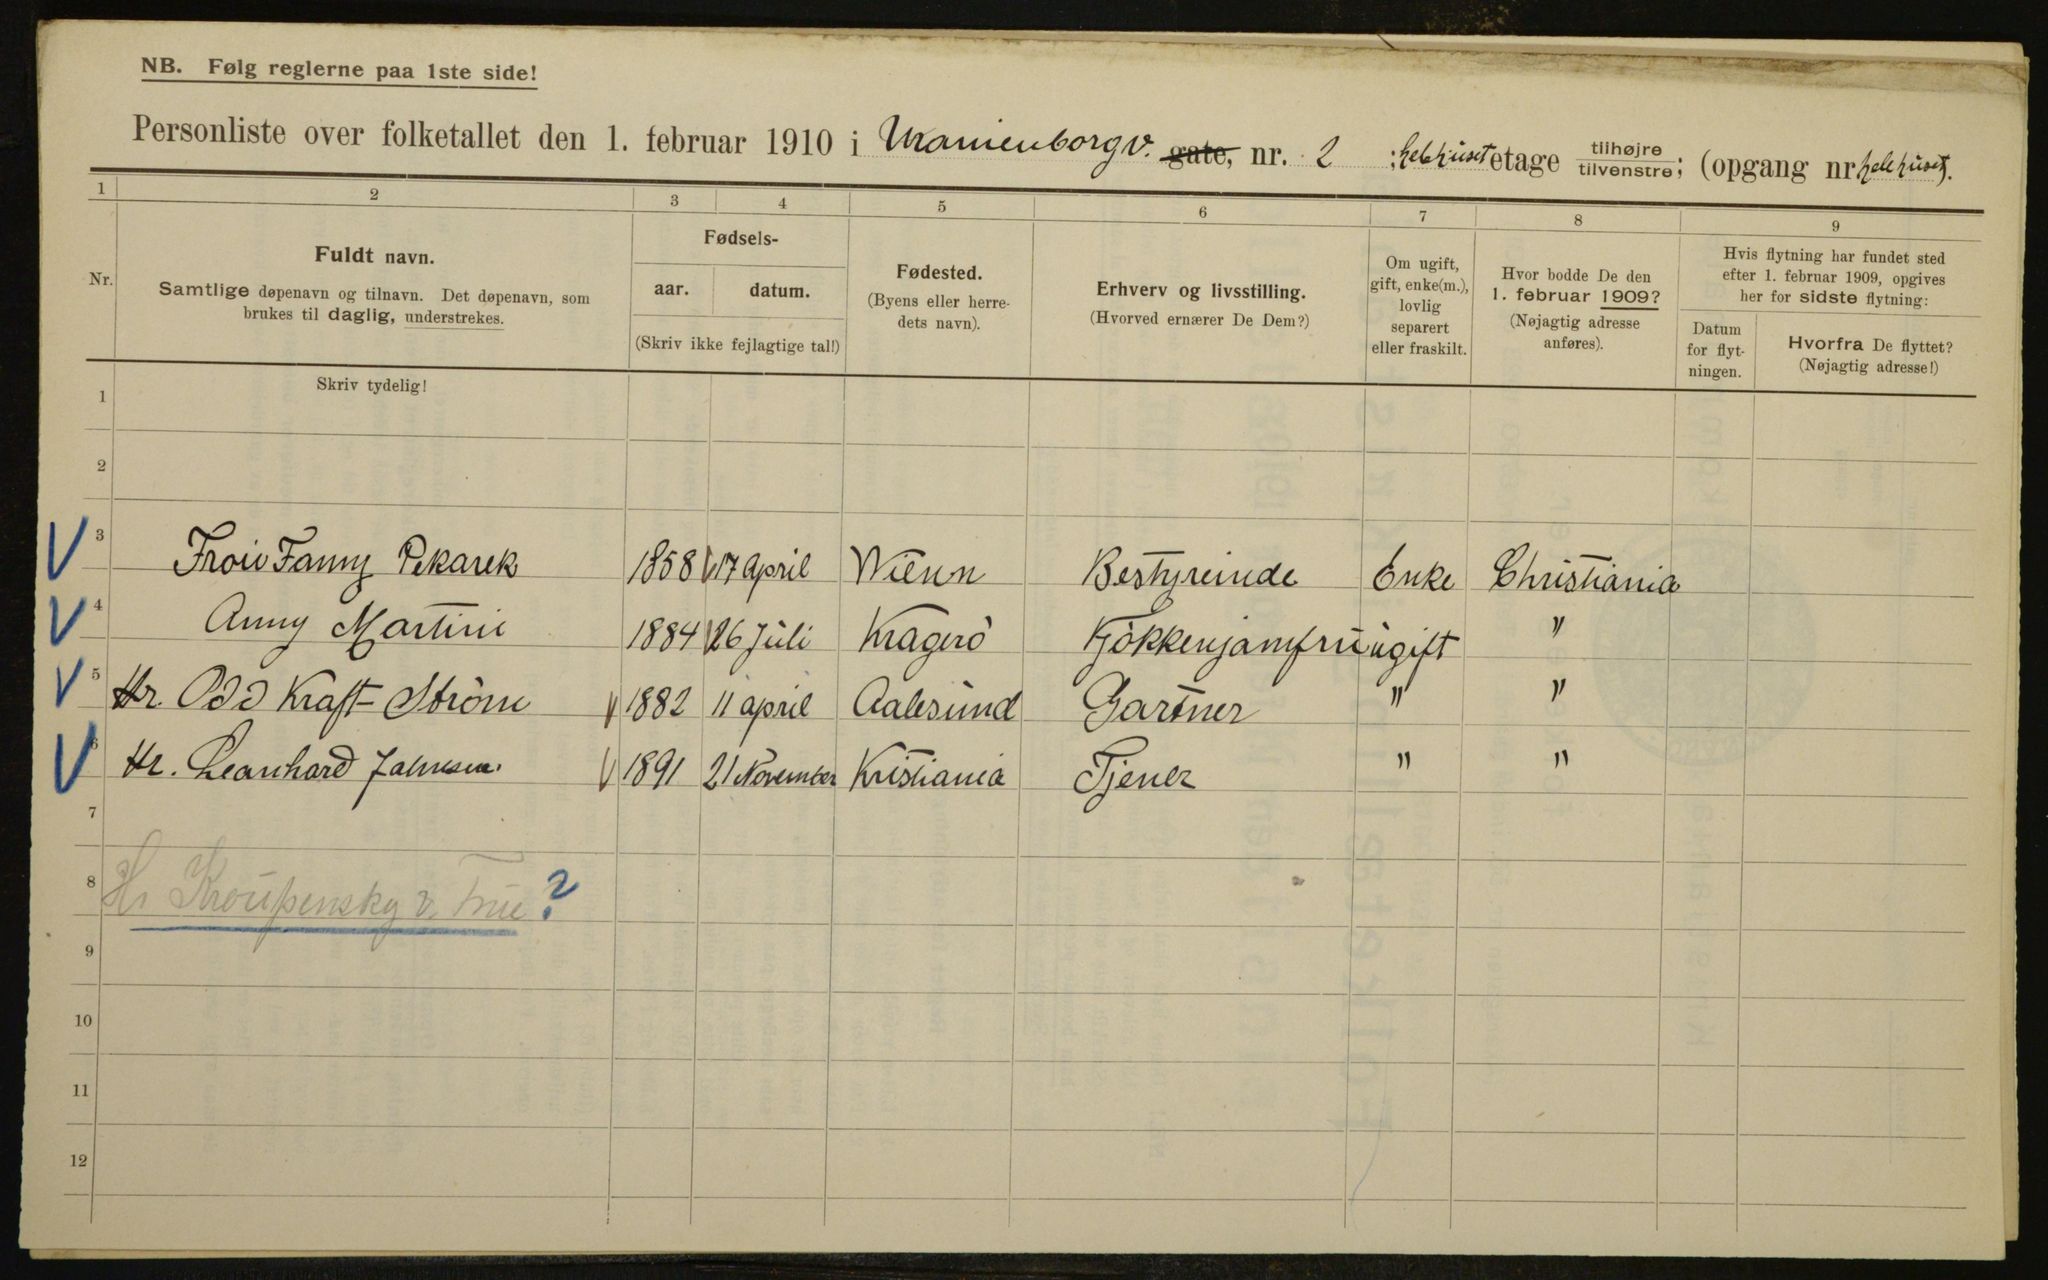 NB. Følg reglerne paa 1ste side!
Personliste over folketallet den 1. februar 1910 i Uranienborgv. gate, nr. 2 ; helehuset etage tilhøjre / tilvenstre; (opgang nr. helehuset).
1 2 3 4 5 6 7 8 9
Nr.
Fuldt navn.
Samtlige døpenavn og tilnavn. Det døpenavn, som
brukes til daglig, understrekes.
Skriv tydelig!
Fødsels-
aar. datum.
(Skriv ikke fejlagtige tal!)
Fødested.
(Byens eller herre-
dets navn).
Erhverv og livsstilling.
(Hvorved ernærer De Dem?)
Om ugift,
gift, enke(m.),
lovlig
separert
eller fraskilt.
Hvor bodde De den
1. februar 1909?
(Nøjagtig adresse
anføres).
Hvis flytning har fundet sted
efter 1. februar 1909, opgives
her for sidste flytning:
Datum
for flyt-
ningen.
Hvorfra De flyttet?
(Nøjagtig adresse!)
1
2
3 Fanny Pekarek 1858 17 April Wienn Bestyreinde Enke Christiania
4 Anny Martini 1884 26 Juli Kragerö Kjökkenjamfru ugift "
5 Hr. Odd Kraft-Ström 1882 11 april Aalesund Gartner " "
6 Hr. Leonhard 1891 21 November Kristiania Tjener " "
7
8 Hr Kroupensky ?
9
10
11
12